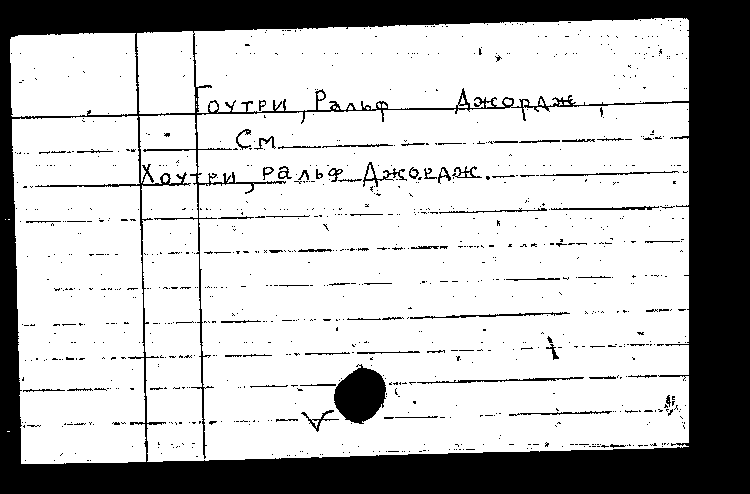 Гоутри, Ральф Джордж,
См
Хоутри, Ральф Джордж.